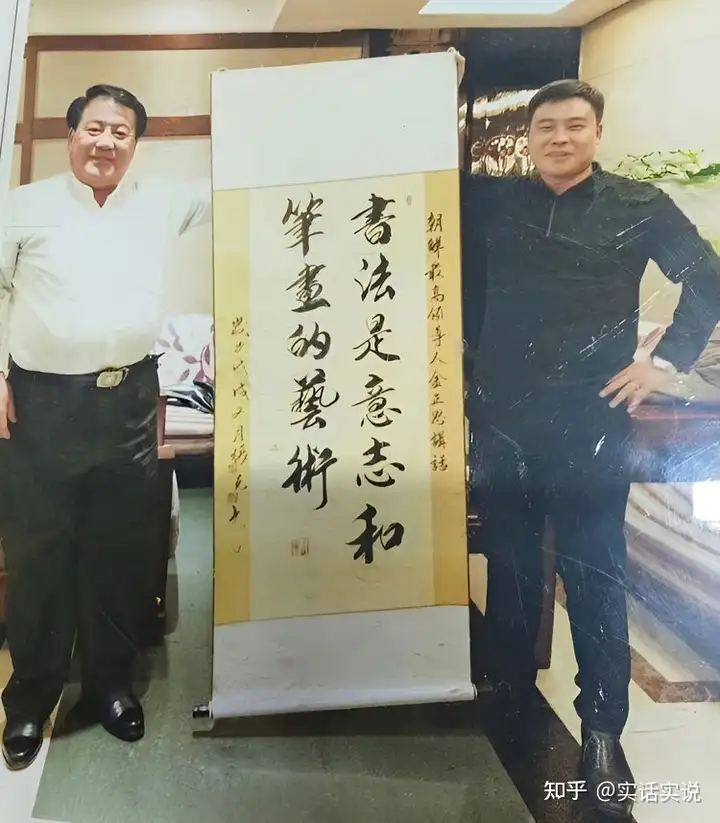 朝鮮最高领导人金正恩講話
書法是意志和
筆畫的藝術
戊戌 月
知乎 @实话实说